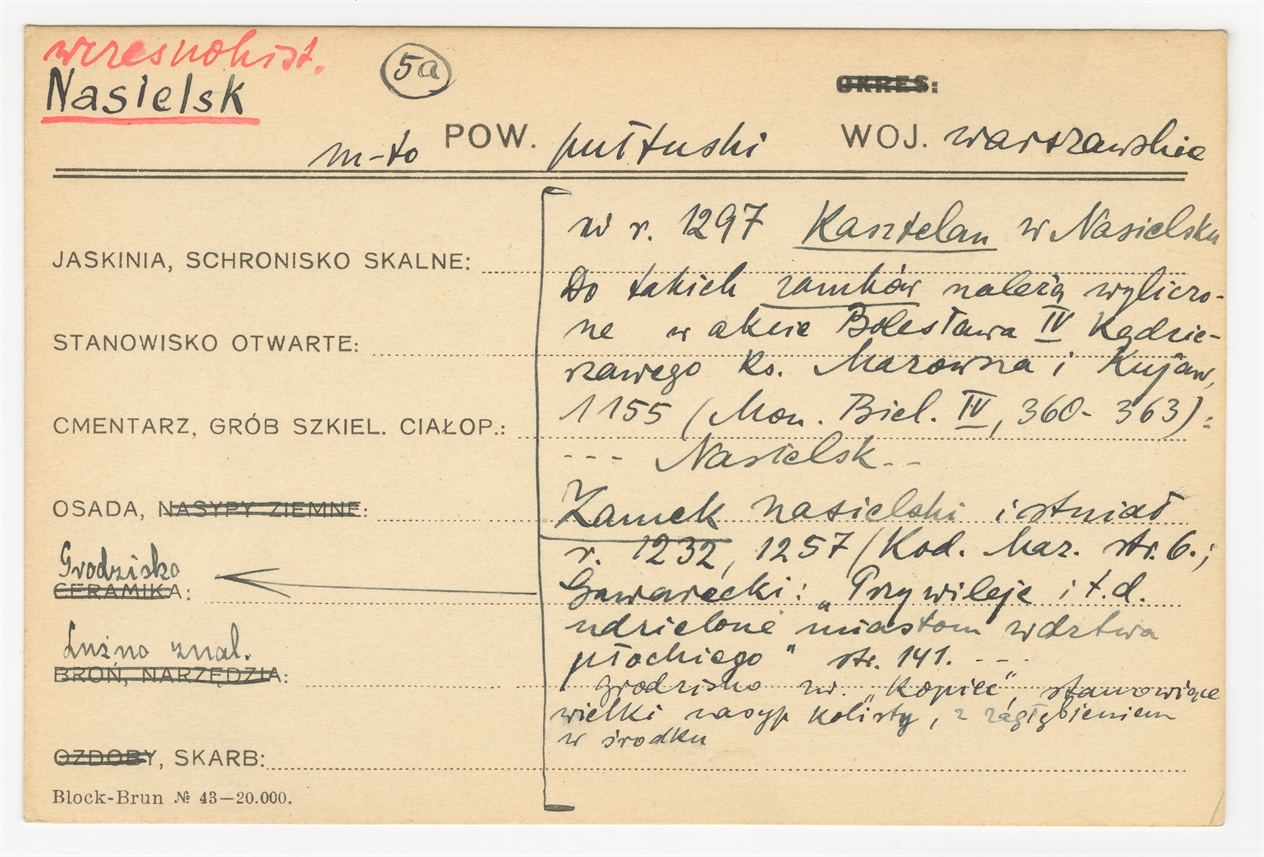 wczesnohist.
Nasielsk
5a
OKRES:
m-to POW. pułtuski WOJ. warszawskie
w r. 1297 Kasztelan w Nasielsku
JASKINIA, SCHRONISKO SKALNE:
Do takich zamków należą wyliczo-
ne w akcie Bolesława IV Kędzie-
STANOWISKO OTWARTE:
rzawego Ks. Mazowsza i Kujaw,
1155 (Mon. Biel. IV, 360-363):
CMENTARZ, GRÓB SZKIEL. CIAŁOP.:
--- Nasielsk --
OSADA, NASYPY ZIEMNE:
Zamek nasielski istniał
r. 1232, 1257 (Kod. Maz. str. 6.;
Grodzisko
CERAMIKA:
Gawarecki: "Przywileje i t.d.
udzielone miastom wdztwa
Luźno znal.
płockiego" str. 141. ---
BROŃ, NARZĘDZIA:
grodzisko zw. "Kopieć", stanowiące
wielki nasyp kolisty, z zagłębieniem
w środku
OZDOBY, SKARB:
Block-Brun № 43—20.000.